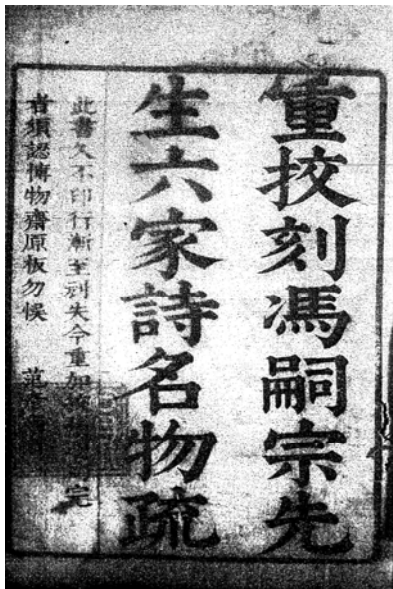 重挍刻馮嗣宗先
生六家詩名物疏
此書久不印行漸至剥失今重加
完
者須認博物齋原板勿悮
范